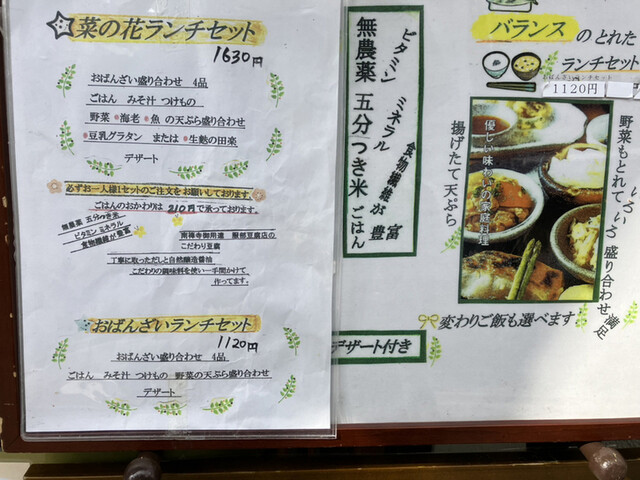 菜の花ランチセット
1630円
おばんざい盛り合わせ 4品
ごはん みそ汁 つけもの
野菜 海老 魚 の天ぷら盛り合わせ
豆乳グラタン または 生麩の田楽
デザート
必ずお一人様1セットのご注文をお願いしております。
ごはんのおかわりは 210円で承っております。
無農薬 五分つき米
ビタミン ミネラル
食物繊維が豊富
南禅寺御用達 服部豆腐店の
こだわり豆腐
丁寧に取っただしと自然醸造醤油
こだわりの調味料を使い一手間かけて
作ってます。
おばんざいランチセット
1120円
おばんざい盛り合わせ 4品
ごはん みそ汁 つけもの 野菜の天ぷら盛り合わせ
デザート
無農薬 五分つき米 ごはん
ビタミン ミネラル 食物繊維が豊富
デザート付き
バランスのとれた
ランチセット
おばんざいランチセット
1120円
野菜もとれていろいろ盛り合わせ満足
優しい味わいの家庭料理
揚げたて天ぷら
変わりご飯も選べます